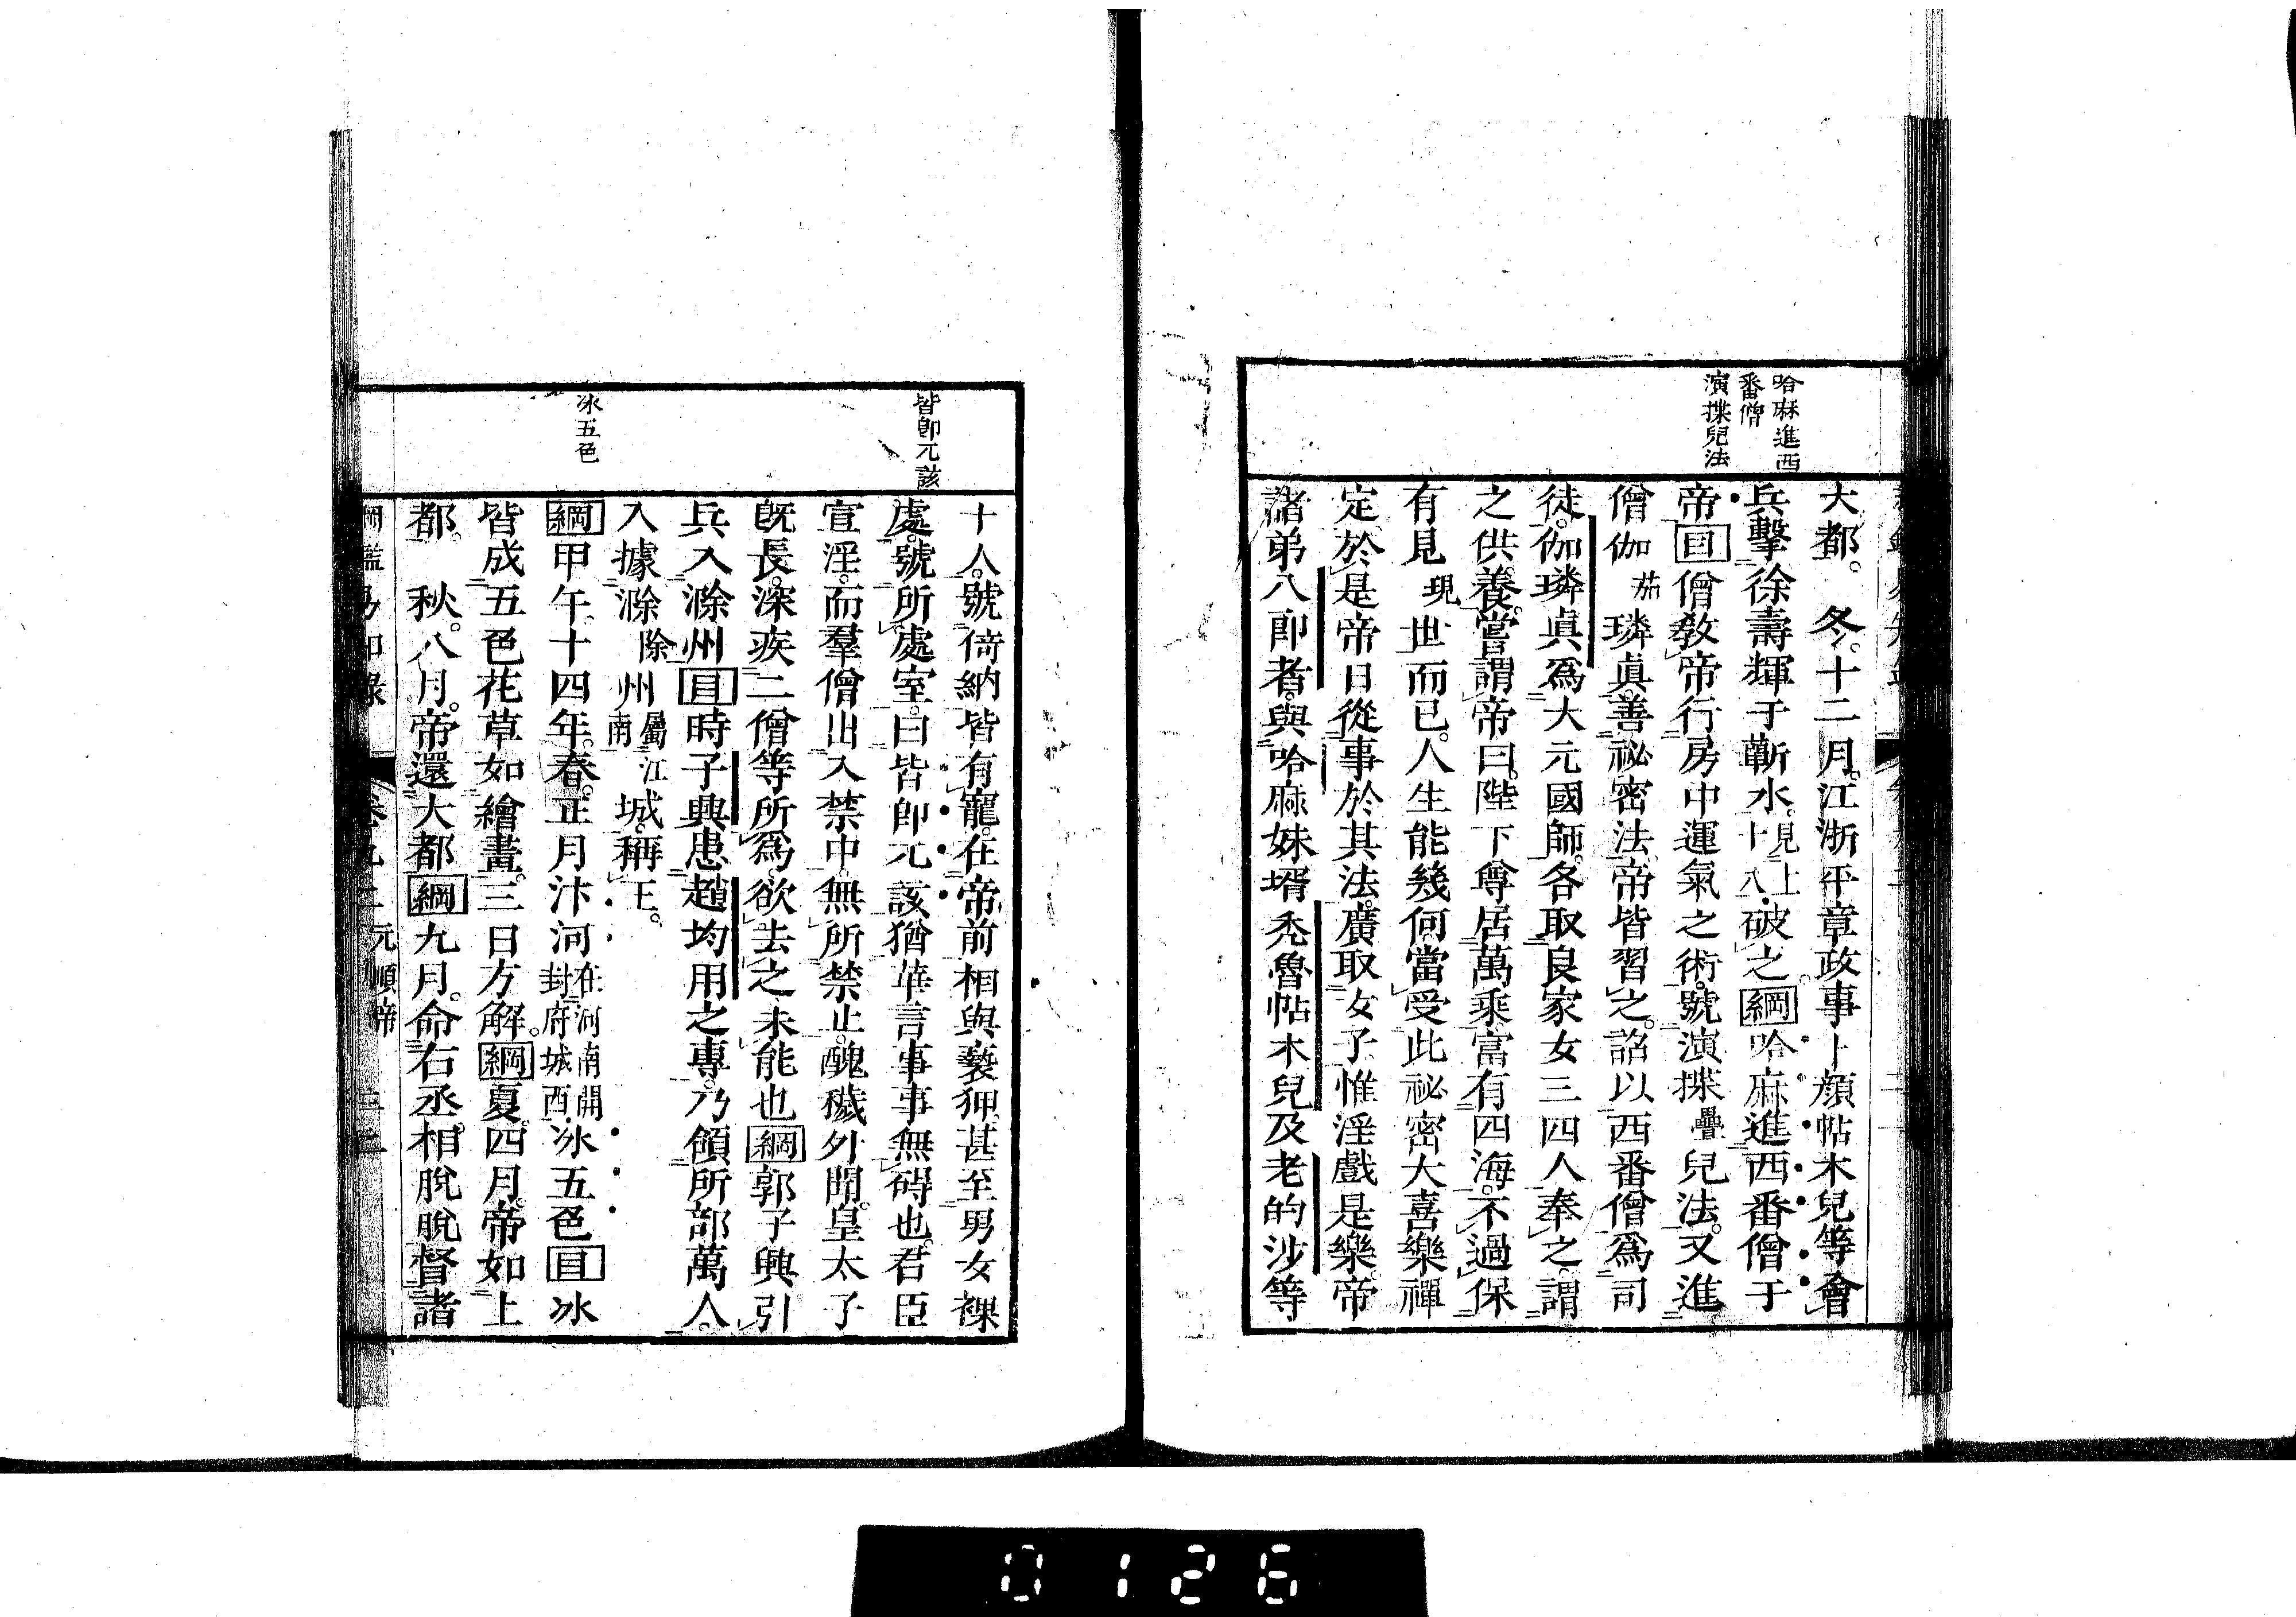 哈麻進西
番僧
演揲兒法
大都。冬。十二月。江浙平章政事卜顏帖木兒等會
兵擊徐壽輝于蘄水。見上十八破之綱哈麻進西番僧于
帝目僧敎帝行房中運氣之術。號演揲疊兒法。又進
僧伽茄璘眞。善祕密法。帝皆習之。詔以西番僧爲司
徒。伽璘眞爲大元國師。各取良家女三四人奉之。謂
之供養。嘗謂帝曰。陛下尊居萬乘。富有四海。不過保
有見現世而已。人生能幾何。當受此祕密大喜樂禪
定。於是帝日從事於其法。廣取女子。惟淫戲是樂。帝
諸弟八郎者。與哈麻妹壻禿魯帖木兒及老的沙等
皆卽兀該
冰五色
十人。號倚納。皆有寵。在帝前相與褻狎。甚至男女裸
處。號所處室。曰皆卽兀該。猶華言事事無碍也。君臣
宣淫。而羣僧出入禁中。無所禁止。醜穢外聞。皇太子
旣長。深疾二僧等所爲。欲去之。未能也綱郭子興引
兵入滁州目時子興患趙均用之專。乃領所部萬人。
入據滁除州屬江南城。稱王。
綱甲午。十四年。春。正月汴河在河南開封府城西冰五色目冰
皆成五色花草如繪畫。三日方解。綱夏。四月。帝如上
都。秋。八月。帝還大都綱九月。命右丞相脫脫督諸
綱鑑易知錄 卷九二 元順帝 三二
0126